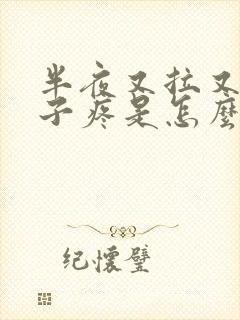 半夜又拉又
子疼是怎麼
纪懷璧